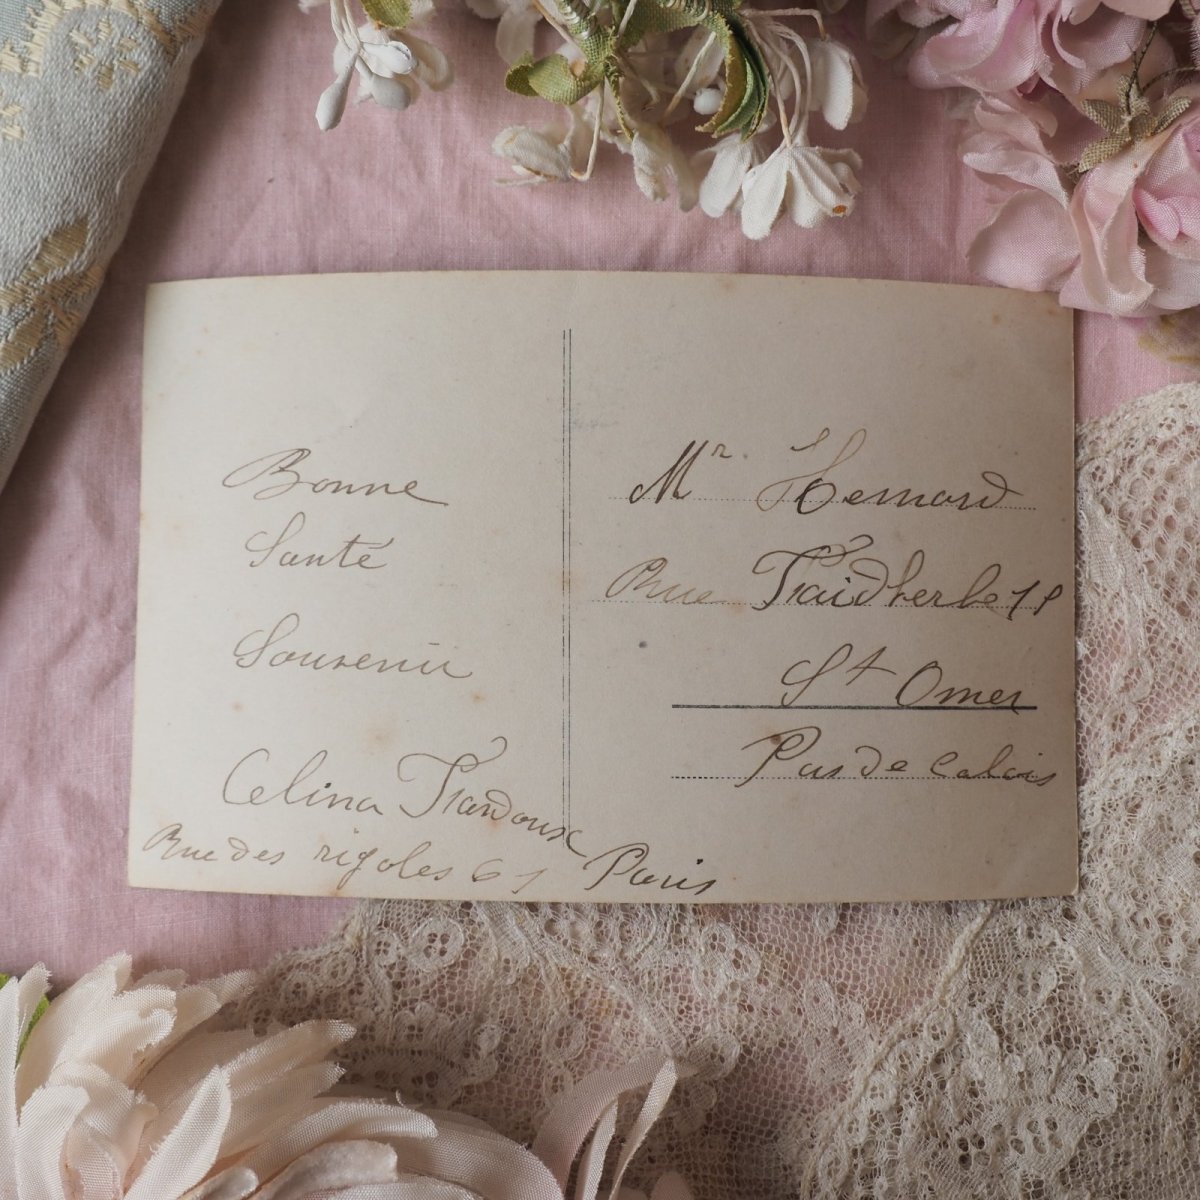 Bonne
Santé
Souvenir
Celina Trardoux
Rue des rigoles 61 Paris
Mr. Hernard
Rue Faidherbe
St Omer
Pas de Calais